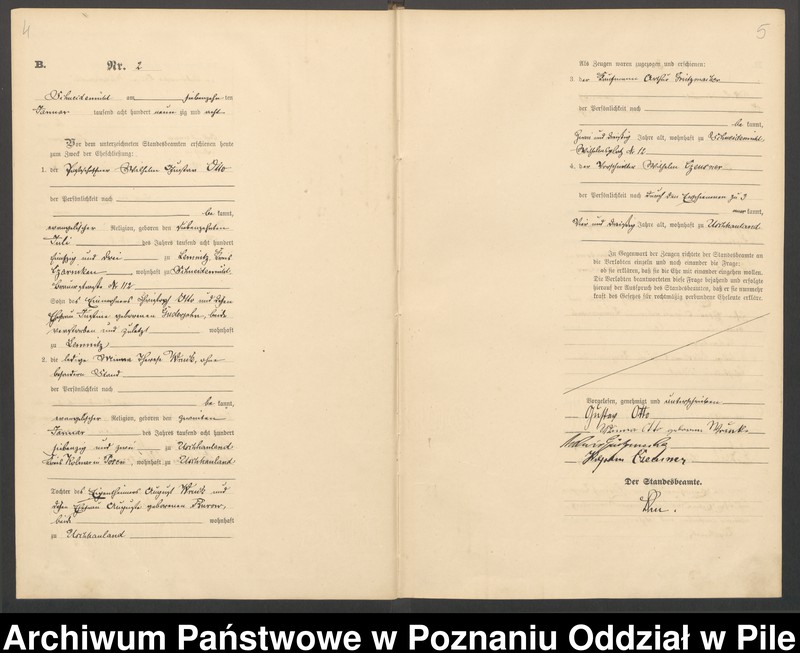 4
B. Nr. 2
Schneidemühl am siebenzehnten
Januar tausend acht hundert neunzig und acht
Vor dem unterzeichneten Standesbeamten erschienen heute
zum Zweck der Eheschließung:
1. der Wilhelm Gustav Otto
der Persönlichkeit nach
be kannt,
evangelischer Religion, geboren den siebenzehnten
Juli des Jahres tausend acht hundert
fünfzig und drei zu Kreis
Czarnikau wohnhaft zu Schneidemühl
No 112
Sohn des Einwohners Otto und dessen
Ehefrau Justine geborenen beide
verstorben und zuletzt wohnhaft
zu
2. die ledige Minna Therese ohne
besonderen Stand
der Persönlichkeit nach
be kannt,
evangelischer Religion, geboren den zweiten
Januar des Jahres tausend acht hundert
siebenzig und zwei zu Uschhauland
Kreis Kolmar in Posen, wohnhaft zu Uschhauland
Tochter des Eigenthümers August und
dessen Ehefrau Auguste geborenen
beide wohnhaft
zu Uschhauland
5
Als Zeugen waren zugezogen und erschienen:
3. der Kaufmann
der Persönlichkeit nach
be kannt,
und dreißig Jahre alt, wohnhaft zu Schneidemühl
Wilhelmsplatz No 12
4. der Wilhelm
der Persönlichkeit nach durch den zu 3
kannt,
vier und dreißig Jahre alt, wohnhaft zu Uschhauland
In Gegenwart der Zeugen richtete der Standesbeamte an
die Verlobten einzeln und nach einander die Frage:
ob sie erklären, daß sie die Ehe mit einander eingehen wollen.
Die Verlobten beantworteten diese Frage bejahend und erfolgte
hierauf der Ausspruch des Standesbeamten, daß er sie nunmehr
kraft des Gesetzes für rechtmäßig verbundene Eheleute erkläre.
Vorgelesen, genehmigt und unterschrieben
Gustav Otto
Minna Otto geborene
Der Standesbeamte.
Archiwum Państwowe w Poznaniu Oddział w Pile